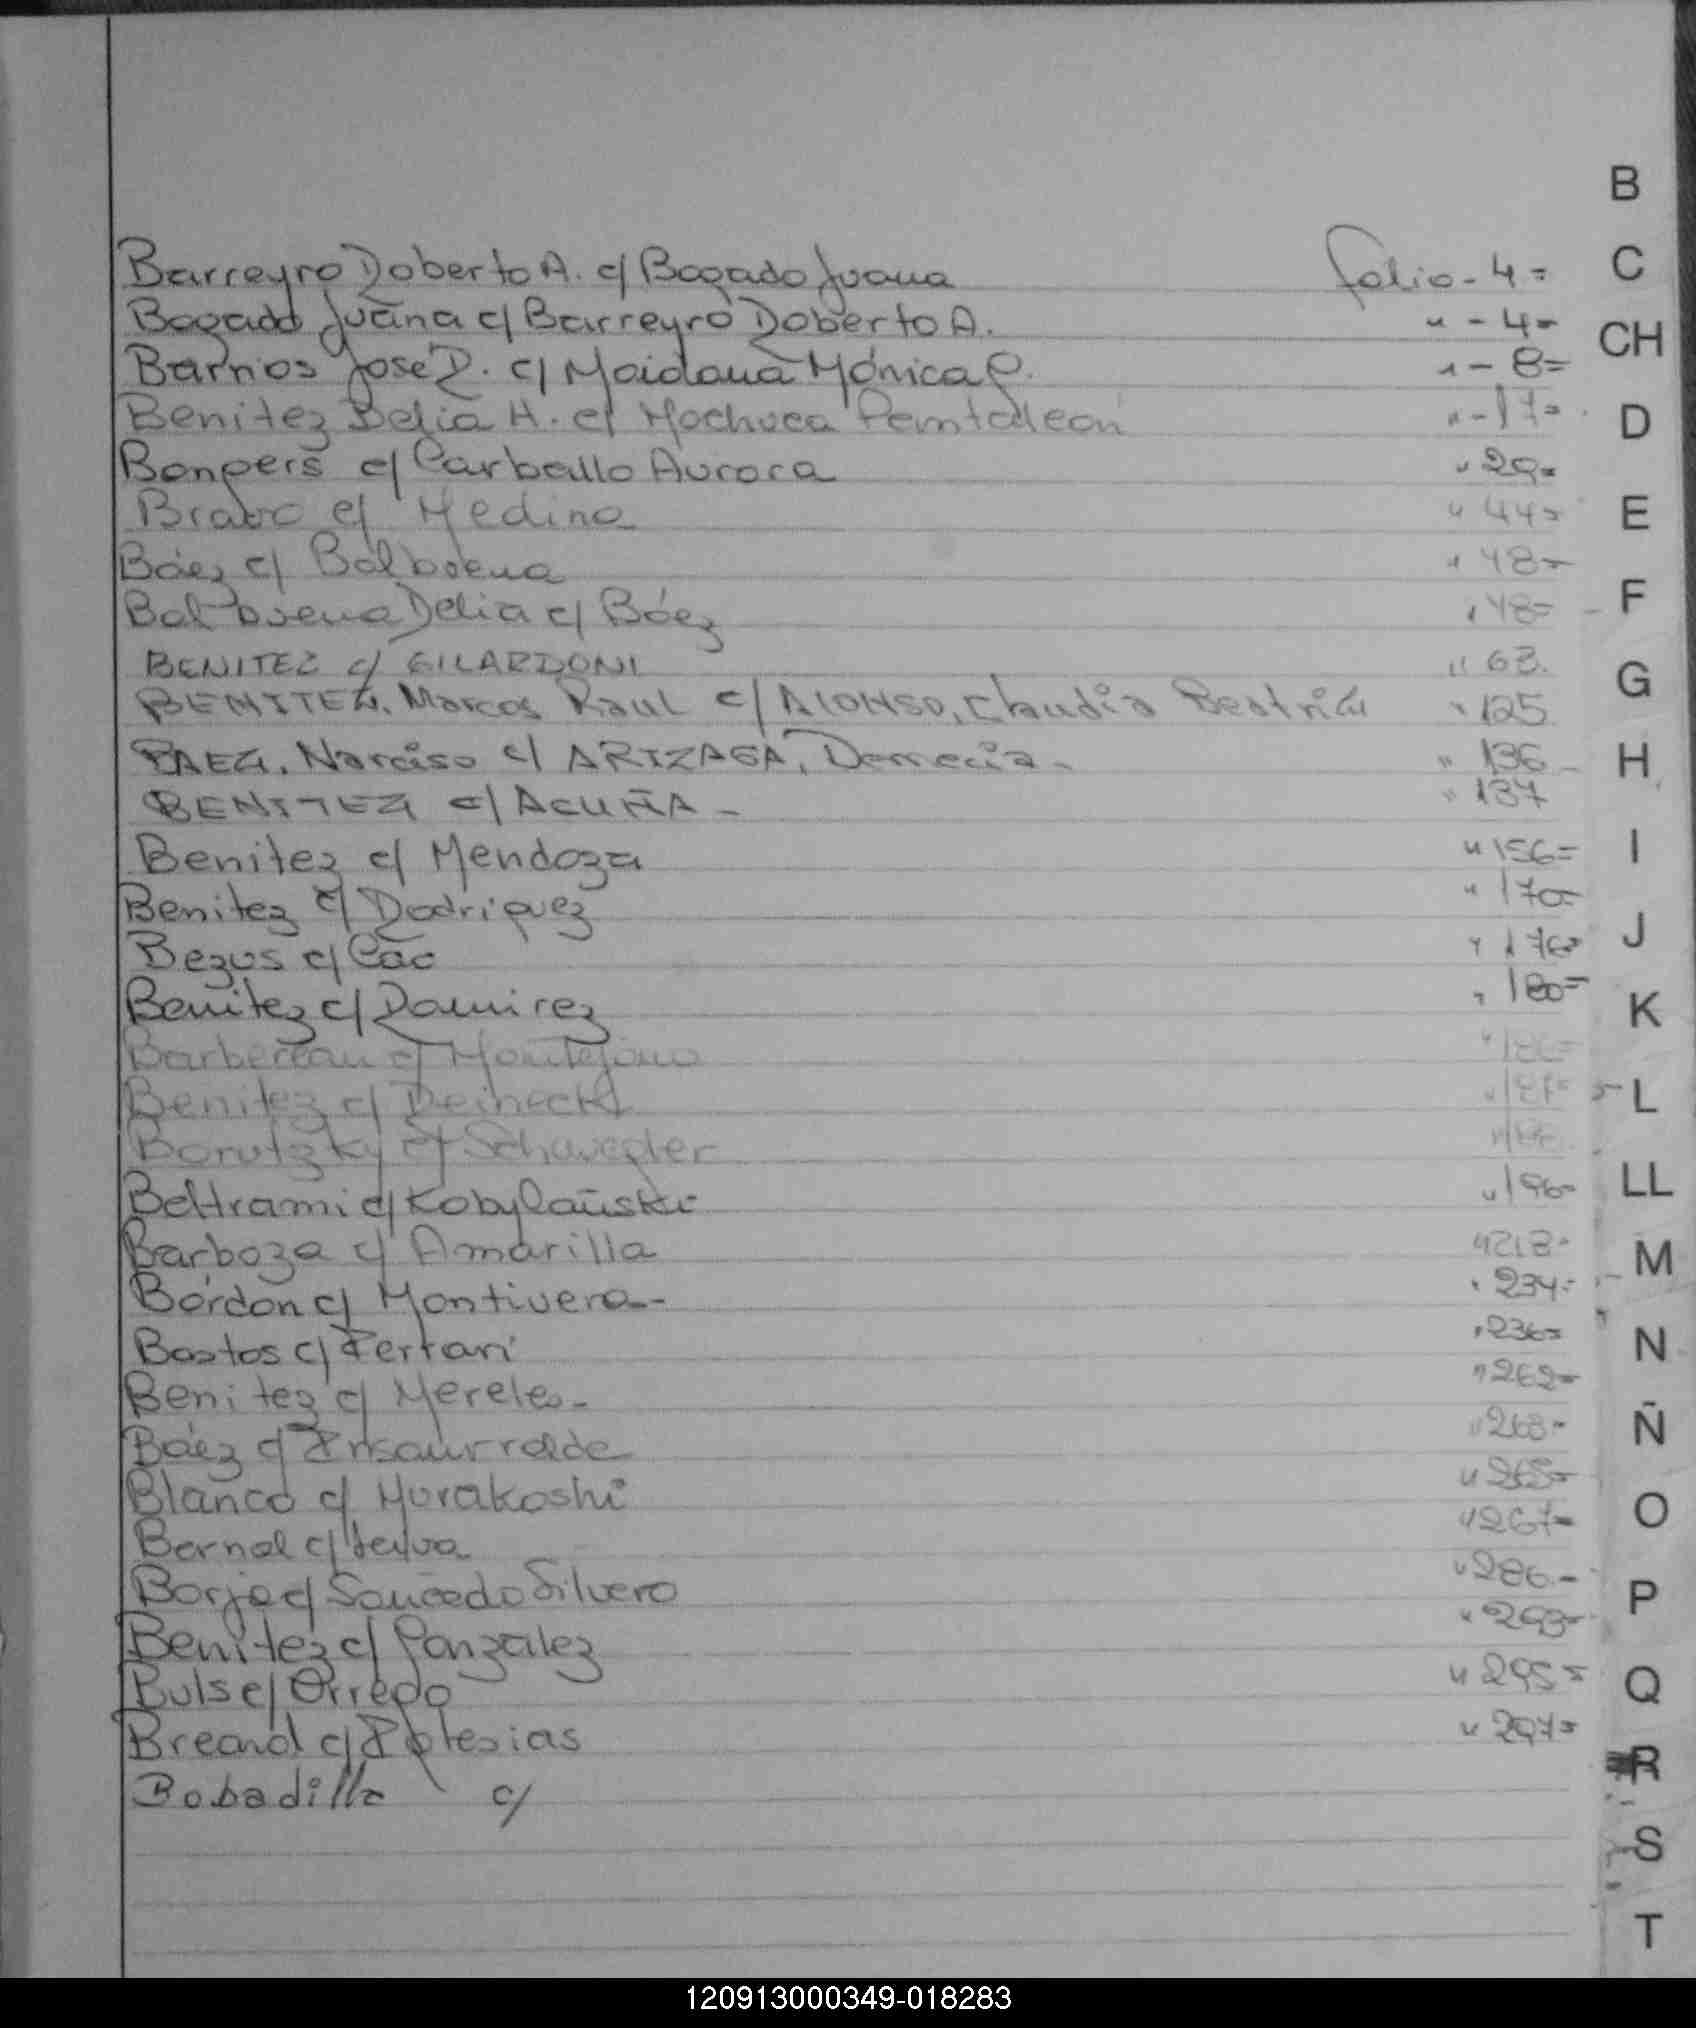 Barreyro Roberto A. c/ Bogado Juana folio - 4 =
Bogado Juana c/ Barreyro Roberto A. " - 4 =
Barrios José R. c/ Maidana Mónica G. " - 8 =
Benitez Delia H. c/ Machuca Pantaleón " - 17 =
Bonpers c/ Carballo Aurora " 29 =
Bravo c/ Medina " 44 =
Báez c/ Balbuena " 48 =
Balbuena Delia c/ Báez " 48 =
BENITEZ c/ GILARDONI " 63.
BENITEZ, Marcos Raul c/ ALONSO, Claudia Beatriz " 125
BAEZ, Narciso c/ ARIZAGA, " 136
BENITEZ c/ ACUÑA - " 137
Benitez c/ Mendoza " 156 =
Benitez c/ Rodriguez " 170 =
Bezus c/ Cao " 176 =
Benitez c/ Ramirez " 180 =
Barbereau c/ "
Benitez c/ Reineck " 187 =
Borutzky c/ Schwegler "
Beltrami c/ Kobylañski " 196 =
Barboza c/ Amarilla " 218 =
Bordon c/ Montivero - " 234 =
Bastos c/ Ferrari " 236 =
Benitez c/ Mereles - " 262 =
Báez c/ Insaurralde " 263 =
Blanco c/ Murakoshi " 265 =
Bernal c/ Leiva " 267 =
Borja c/ Saucedo Silvero " 286 =
Benitez c/ Gonzalez " 293 =
Buls c/ Orrego " 295 =
Breard c/ Iglesias " 297 =
Bobadilla c/
B
C
CH
D
E
F
G
H
I
J
K
L
LL
M
N
Ñ
O
P
Q
R
S
T
120913000349-018283